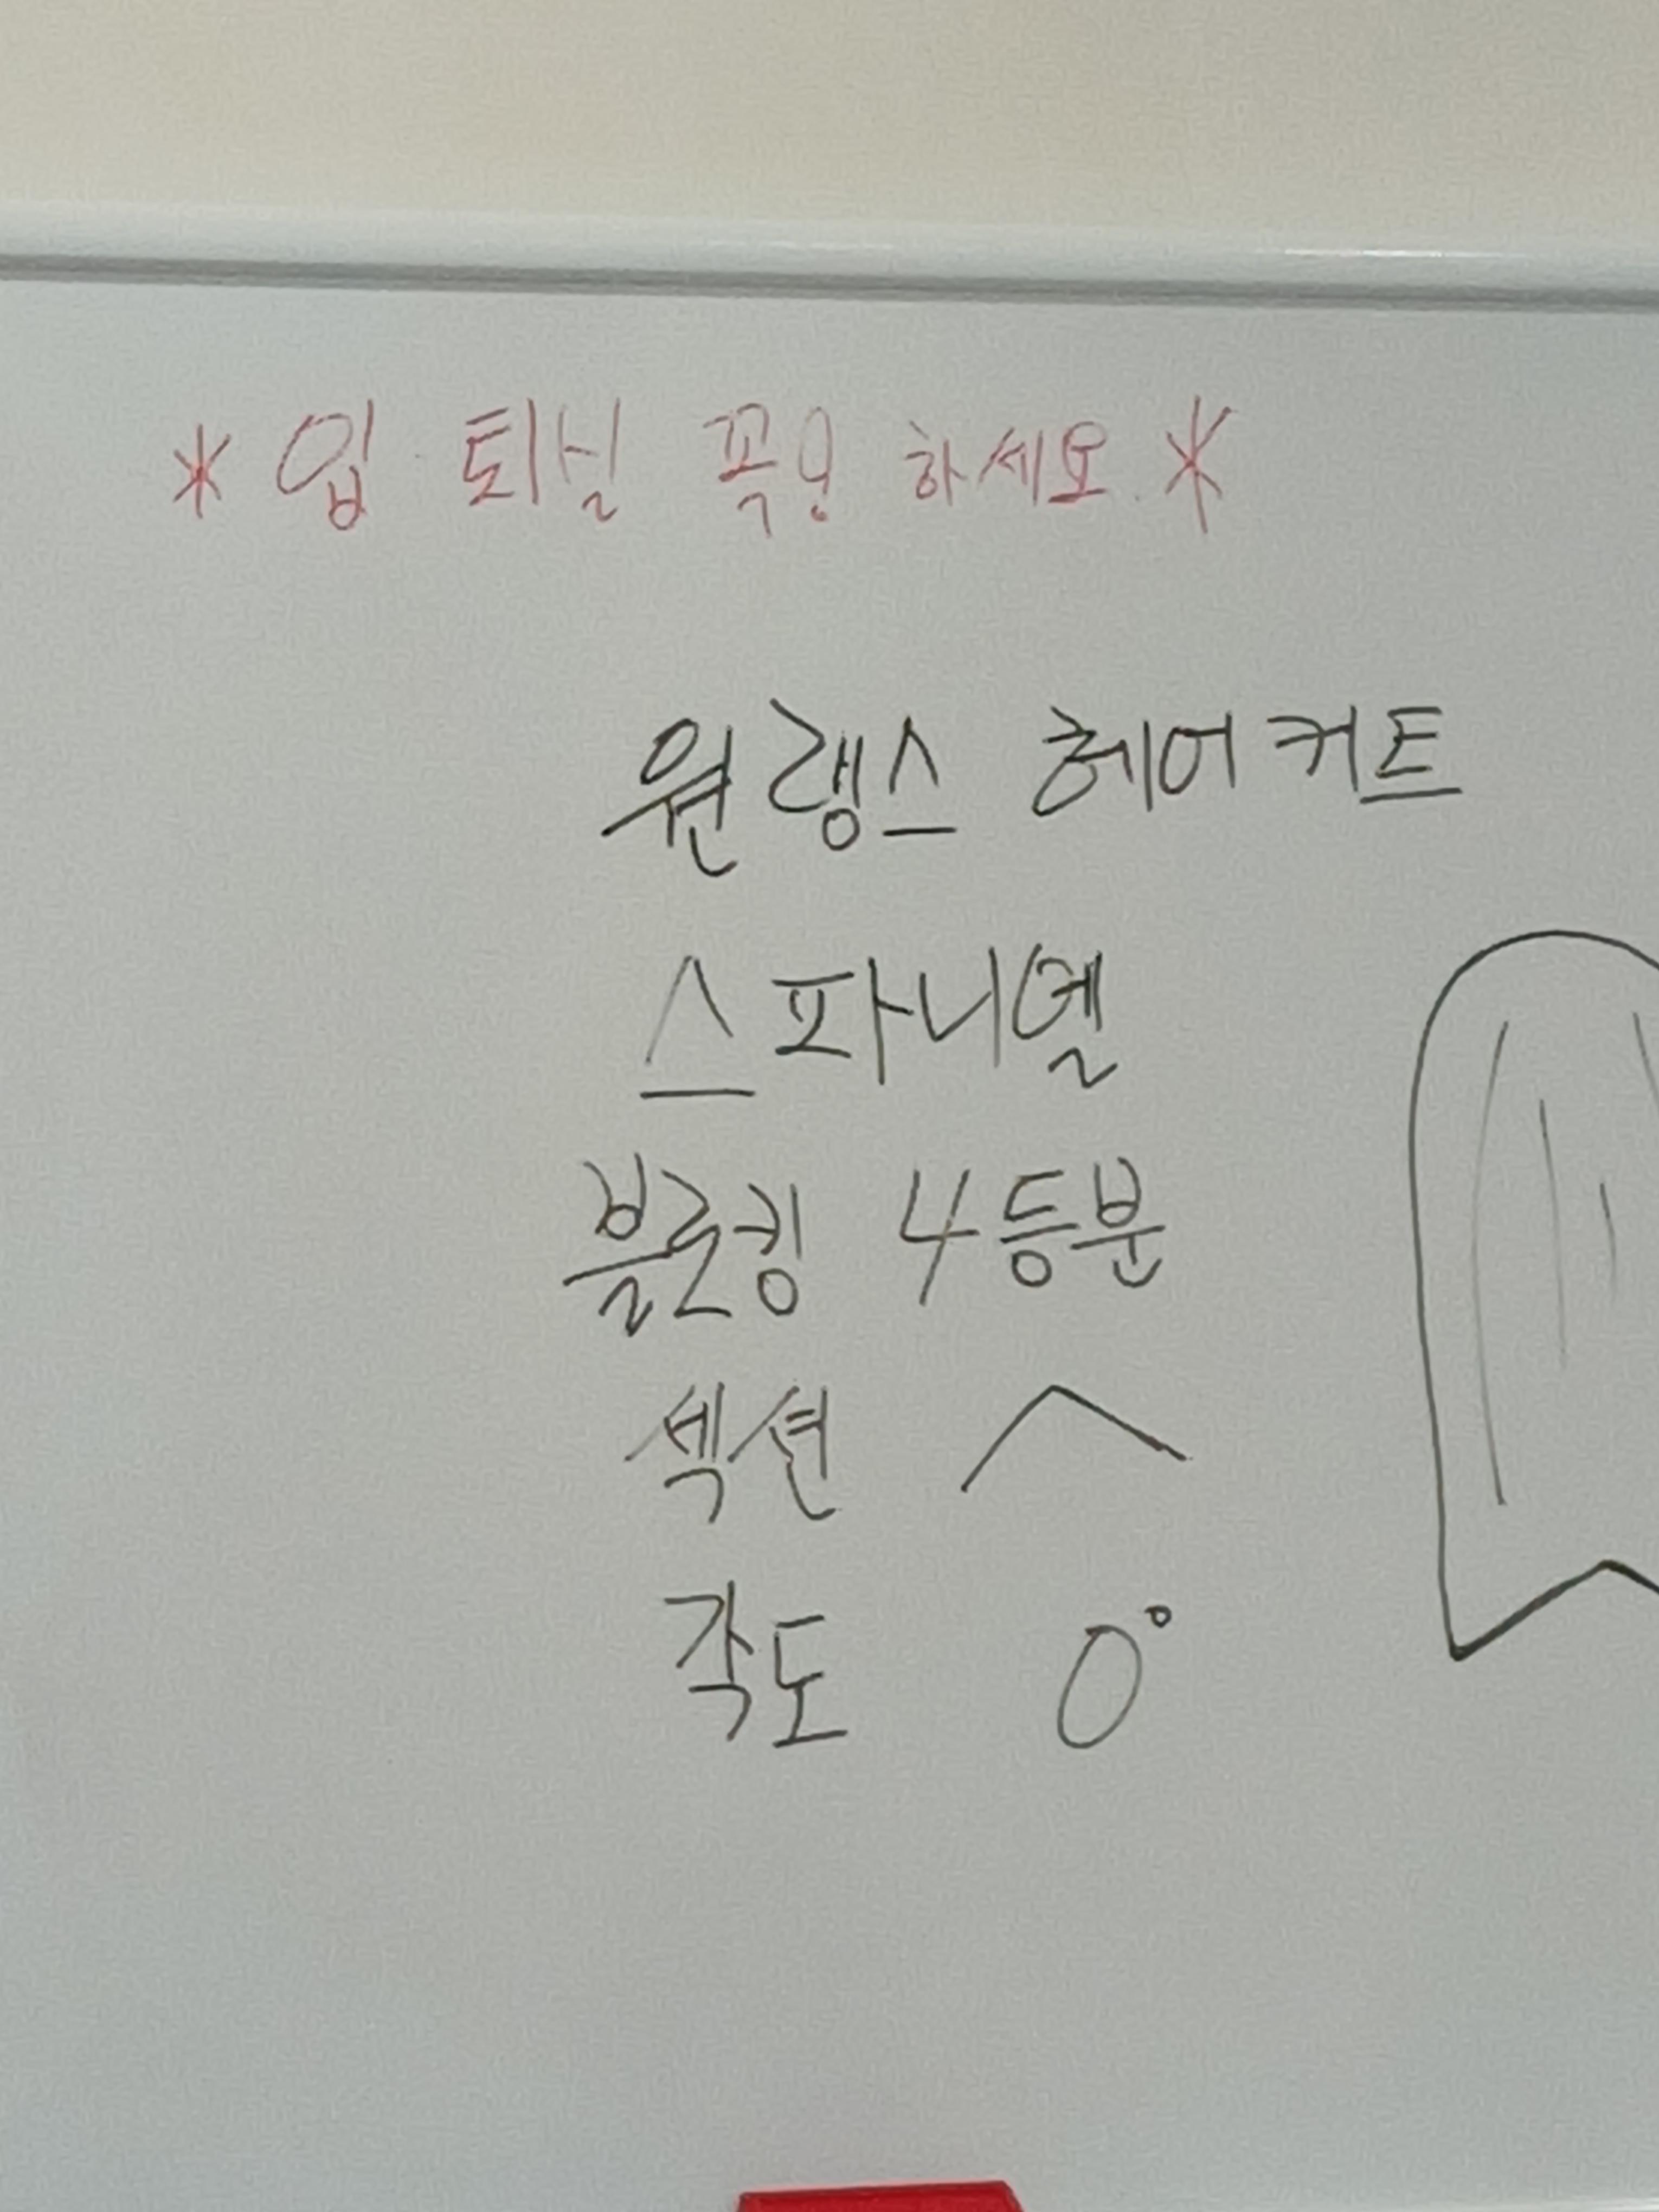 * 입·퇴실 꼭! 하세요.*
원랭스 헤어커트
스파니엘
블로킹 4등분
섹션 ヘ
각도 0°